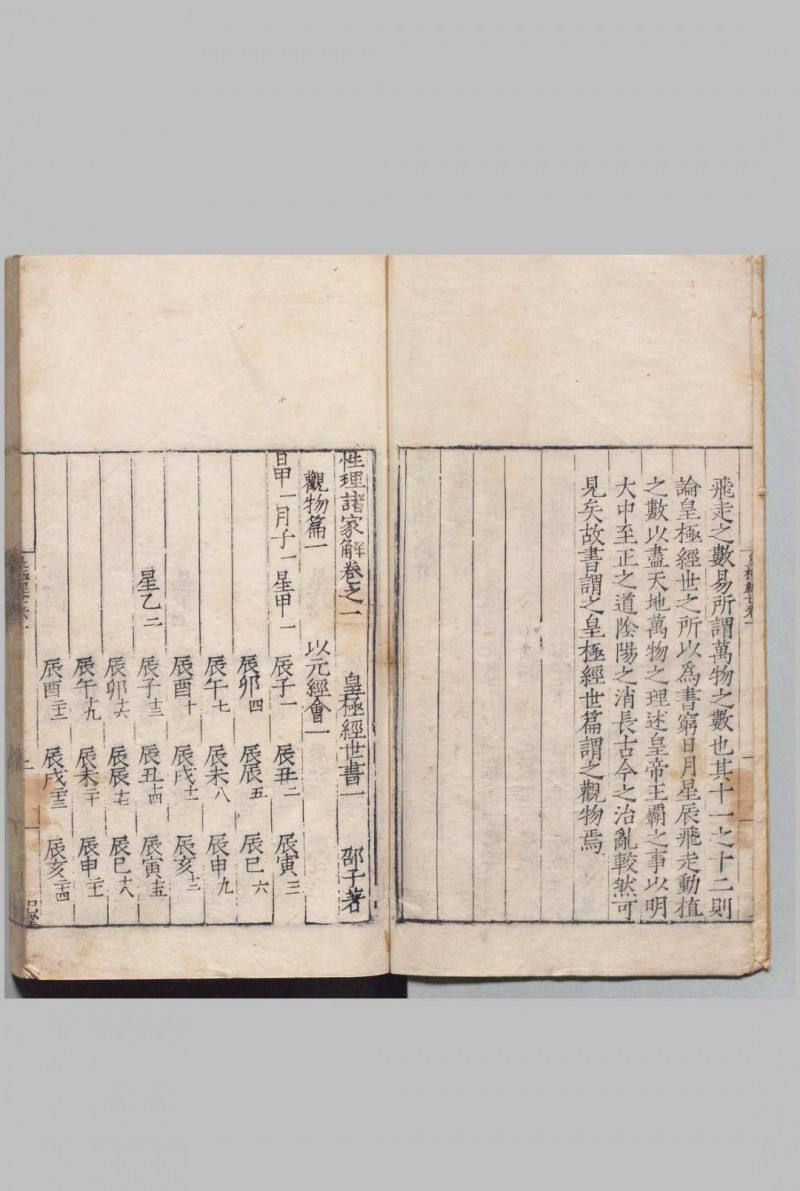 飛走之數易所謂萬物之數也其十一之十二則
論皇極經世之所以為書窮日月星辰飛走動植
之數以盡天地萬物之理述皇帝王霸之事以明
大中至正之道陰陽之消長古今之治亂較然可
見矣故書謂之皇極經世篇謂之觀物焉
性理諸家解卷之一 皇極經世書一 邵子著
觀物篇一 以元經會一
日甲一月子一 星甲一 辰子一 辰丑二 辰寅三
辰卯四 辰辰五 辰巳六
辰午七 辰未八 辰申九
辰酉十 辰戌十一 辰亥十二
星乙二 辰子十三 辰丑十四 辰寅十五
辰卯十六 辰辰十七 辰巳十八
辰午十九 辰未二十 辰申二十一
辰酉二十二 辰戌二十三 辰亥二十四